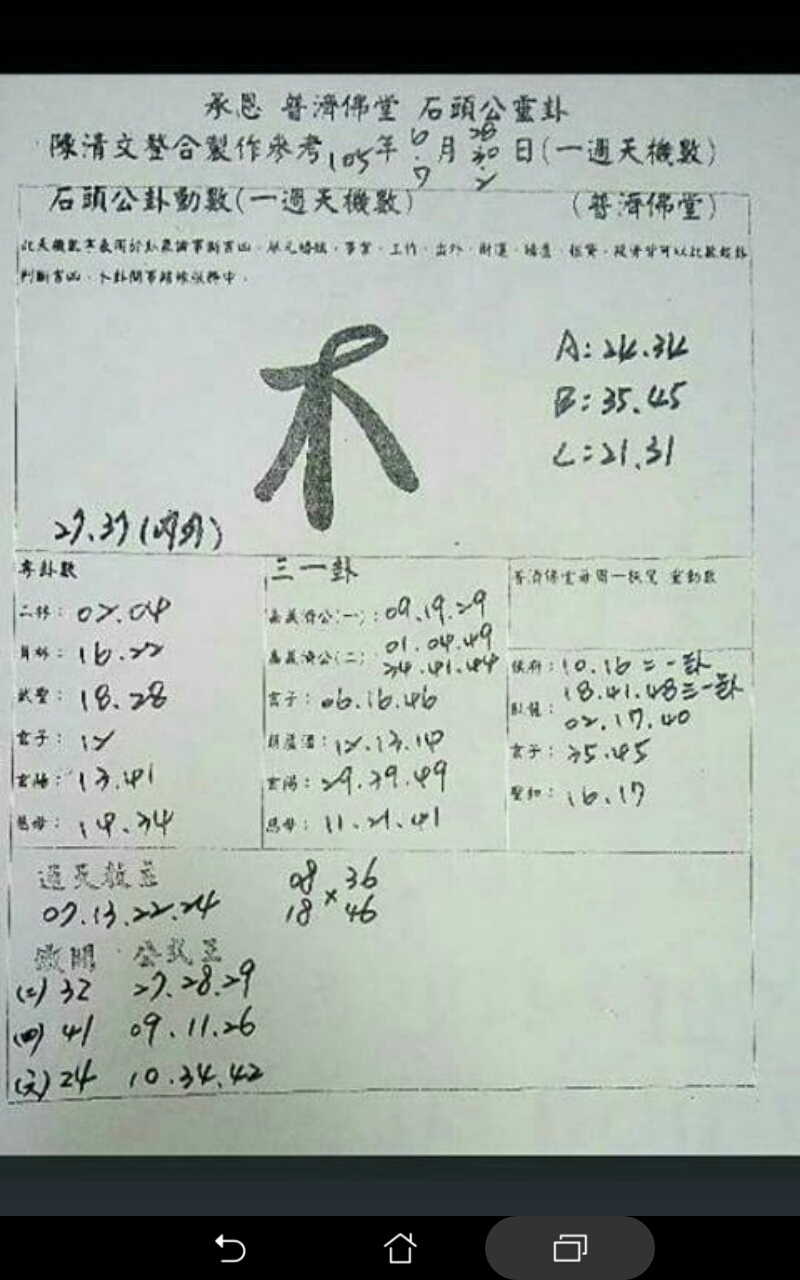 承恩 普濟佛堂 石頭公靈卦
陳清文整合製作參考105年 6.7 月 28 30 2 日(一週天機數)
石頭公卦動數(一週天機數) (普濟佛堂)
A:24.34
B:35.45
C:21.31
27.37
二林:02.04
16.22
武聖:18.28
玄子:12
13.41
14.34
三一卦
嘉義濟公(一):09.19.29
嘉義濟公(二):01.04.49
24.41.44
玄子:06.16.46
葫蘆酒:12.13.14
29.39.49
11.21.41
10.16=一卦
臥龍:18.41.48三一卦
02.17.40
玄子:35.45
16.17
通天教主
07.13.22.24
08 × 36
18 46
(二)32 27.28.29
(四)41 09.11.26
(六)24 10.34.42